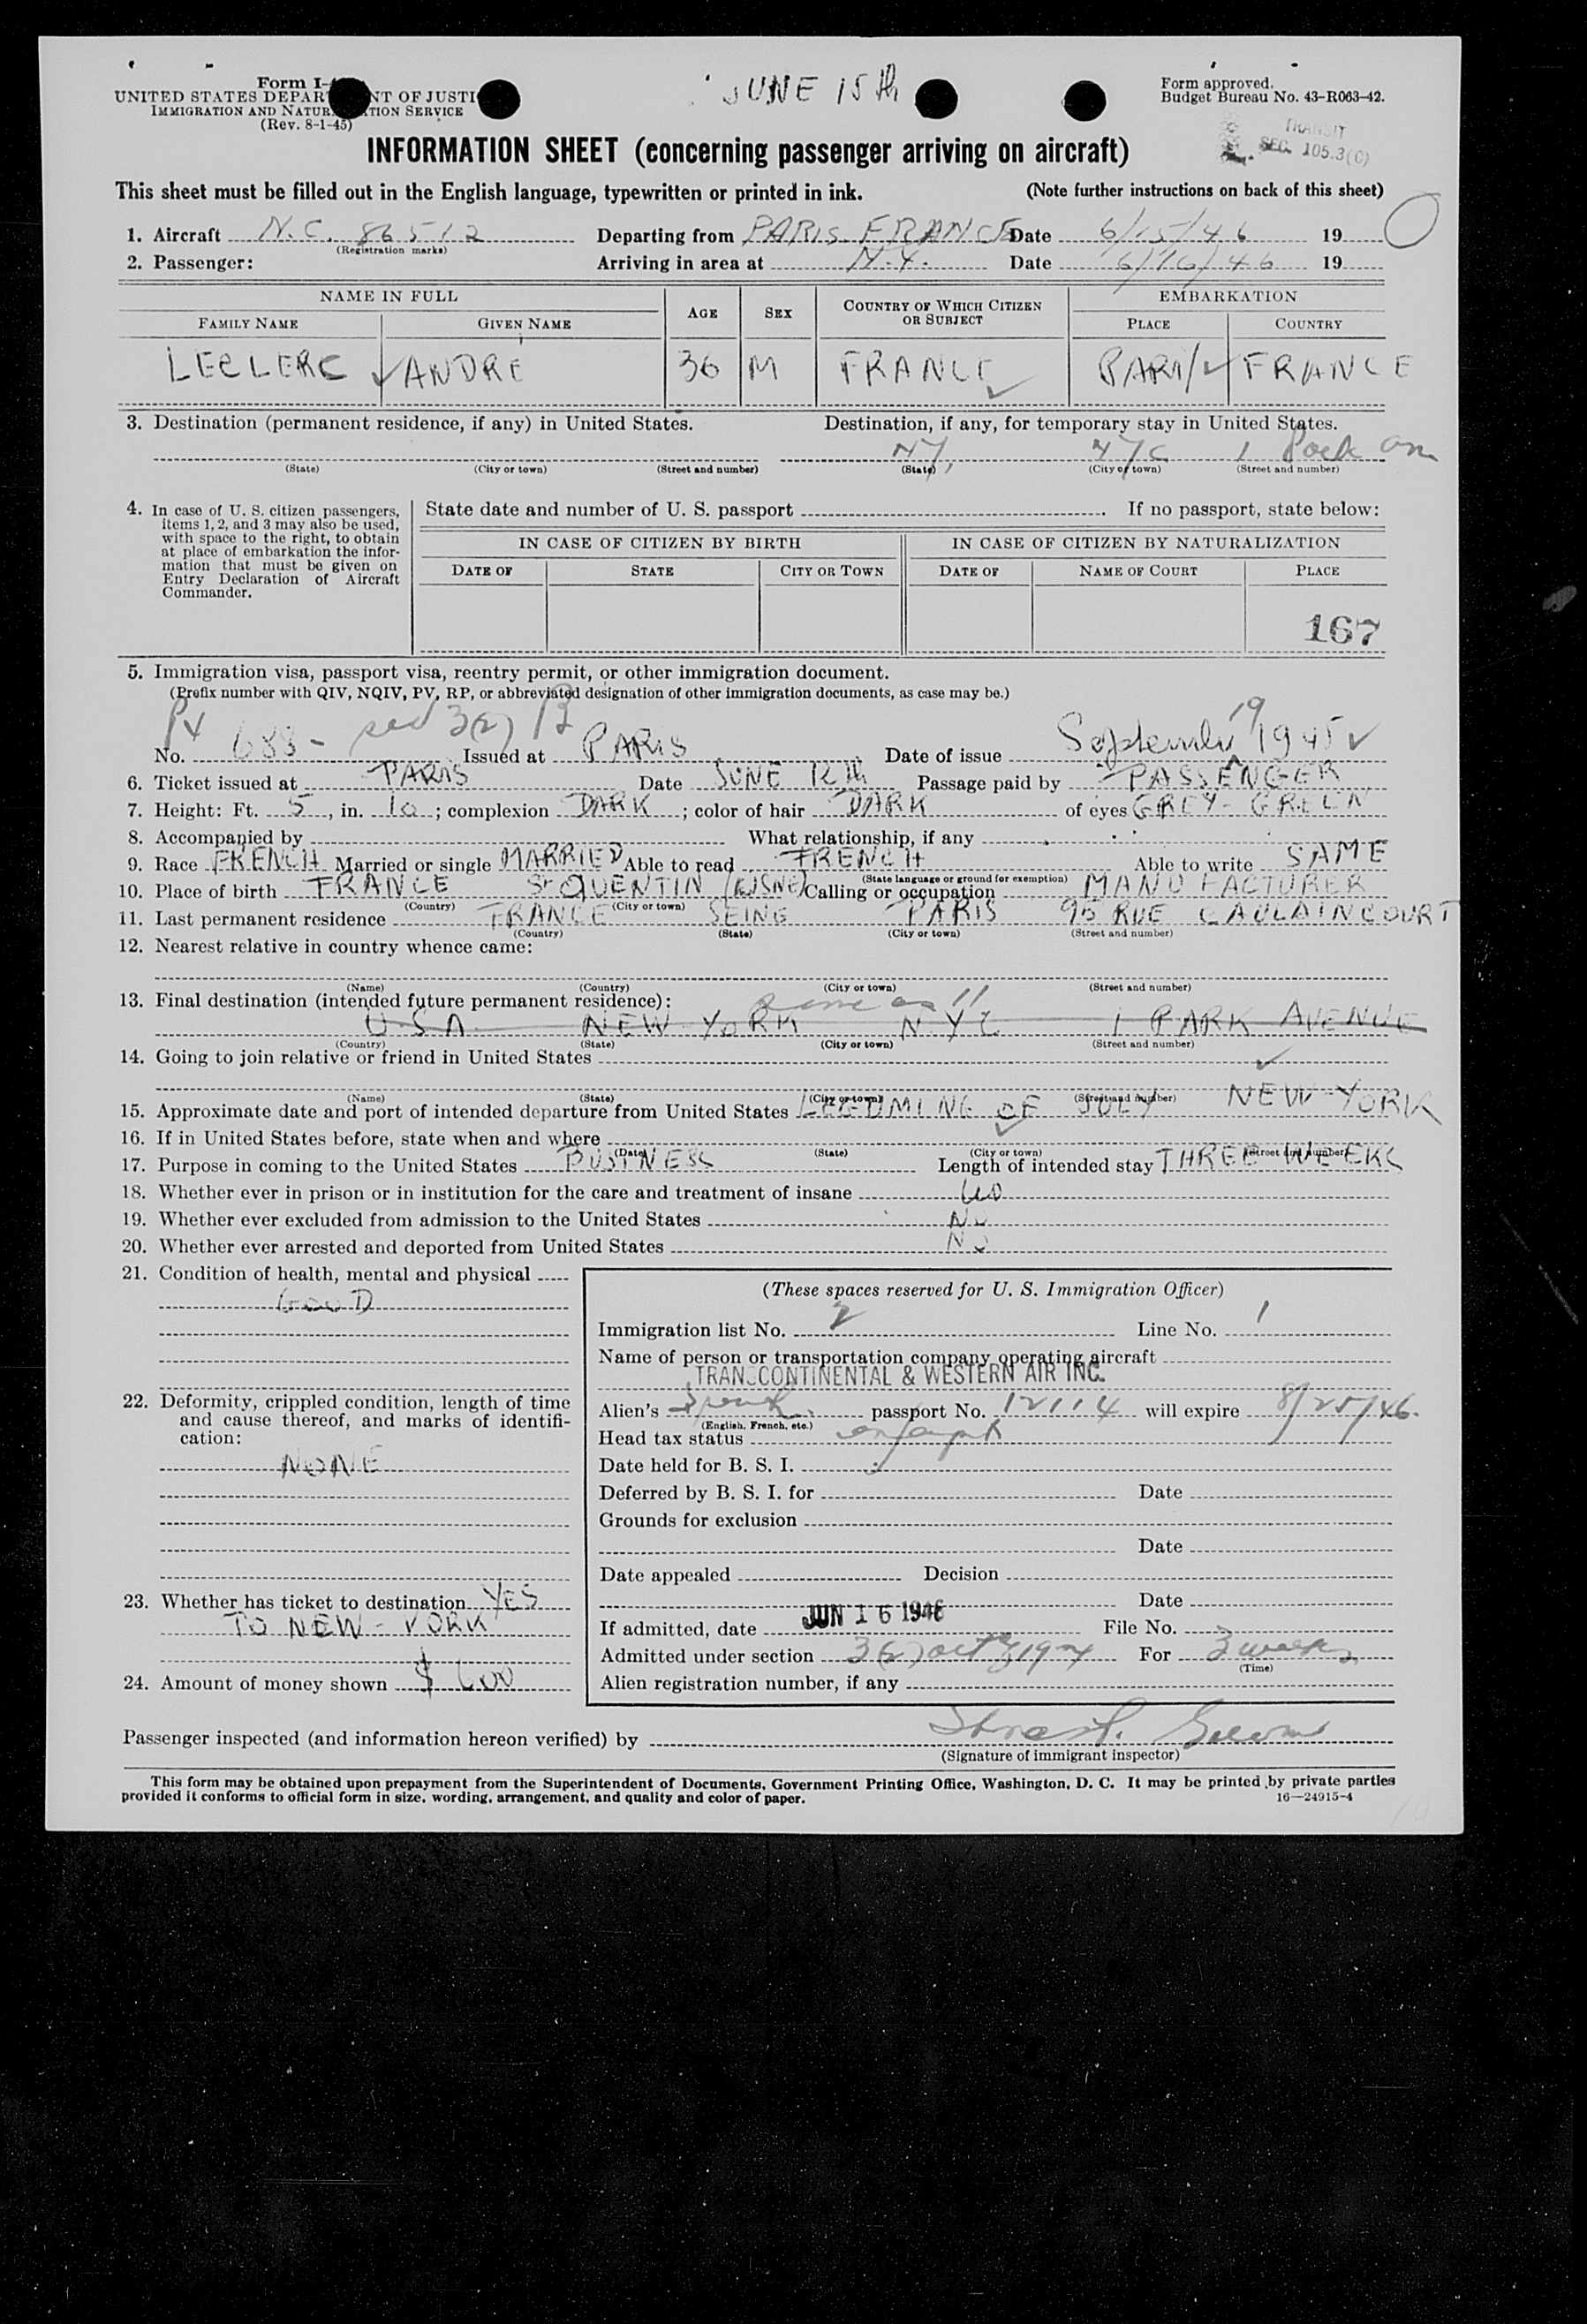 JUNE 15th
Form I-
UNITED STATES DEPAR NT OF JUSTI
IMMIGRATION AND NATUR TION SERVICE
(Rev. 8-1-45)
Form approved.
Budget Bureau No. 43-R063-42.
TRANSIT
SEC. 105.3(C)
INFORMATION SHEET (concerning passenger arriving on aircraft)
This sheet must be filled out in the English language, typewritten or printed in ink. (Note further instructions on back of this sheet)
1. Aircraft N.C. 86512 Departing from PARIS FRANCE Date 6/15/46 19
(Registration marks)
2. Passenger: Arriving in area at N.Y. Date 6/16/46 19
NAME IN FULL AGE SEX COUNTRY OF WHICH CITIZEN OR SUBJECT EMBARKATION
FAMILY NAME GIVEN NAME PLACE COUNTRY
LECLERC ANDRE 36 M FRANCE PARIS FRANCE
3. Destination (permanent residence, if any) in United States. Destination, if any, for temporary stay in United States.
NY, NYC 1 Park
(State) (City or town) (Street and number) (State) (City or town) (Street and number)
4. In case of U. S. citizen passengers, items 1, 2, and 3 may also be used, with space to the right, to obtain at place of embarkation the information that must be given on Entry Declaration of Aircraft Commander.
State date and number of U. S. passport . If no passport, state below:
IN CASE OF CITIZEN BY BIRTH IN CASE OF CITIZEN BY NATURALIZATION
DATE OF STATE CITY OR TOWN DATE OF NAME OF COURT PLACE
167
5. Immigration visa, passport visa, reentry permit, or other immigration document.
(Prefix number with QIV, NQIV, PV, RP, or abbreviated designation of other immigration documents, as case may be.)
PV 3(2)
No. 688 - Issued at PARIS Date of issue September 19 1945
6. Ticket issued at PARIS Date JUNE 12th Passage paid by PASSENGER
7. Height: Ft. 5, in. 10; complexion DARK; color of hair DARK of eyes GREY-GREEN
8. Accompanied by What relationship, if any
9. Race FRENCH Married or single MARRIED Able to read FRENCH Able to write SAME
(State language or ground for exemption)
10. Place of birth FRANCE St QUENTIN (AISNE) Calling or occupation MANUFACTURER
(Country) (City or town)
11. Last permanent residence FRANCE SEINE PARIS 95 RUE CAULAINCOURT
(Country) (State) (City or town) (Street and number)
12. Nearest relative in country whence came:
(Name) (Country) (City or town) (Street and number)
13. Final destination (intended future permanent residence): same as 11
U.S.A. NEW YORK NYC 1 PARK AVENUE
(Country) (State) (City or town) (Street and number)
14. Going to join relative or friend in United States
(Name) (State) (City or town) (Street and number)
15. Approximate date and port of intended departure from United States OF JULY NEW-YORK
16. If in United States before, state when and where
(Date) (State) (City or town) (Street and number)
17. Purpose in coming to the United States BUSINESS Length of intended stay THREE WEEKS
18. Whether ever in prison or in institution for the care and treatment of insane NO
19. Whether ever excluded from admission to the United States NO
20. Whether ever arrested and deported from United States NO
21. Condition of health, mental and physical
GOOD
22. Deformity, crippled condition, length of time and cause thereof, and marks of identification:
NONE
23. Whether has ticket to destination YES
TO NEW-YORK
24. Amount of money shown $ 600
(These spaces reserved for U. S. Immigration Officer)
Immigration list No. 2 Line No. 1
Name of person or transportation company operating aircraft
TRANSCONTINENTAL & WESTERN AIR INC.
Alien's French passport No. 12114 will expire 8/25/46.
(English, French, etc.)
Head tax status exempt
Date held for B. S. I.
Deferred by B. S. I. for Date
Grounds for exclusion
Date
Date appealed Decision
Date
If admitted, date JUN 16 1946 File No.
Admitted under section 3(2) For 3 weeks
(Time)
Alien registration number, if any
Passenger inspected (and information hereon verified) by
(Signature of immigrant inspector)
This form may be obtained upon prepayment from the Superintendent of Documents, Government Printing Office, Washington, D. C. It may be printed by private parties
provided it conforms to official form in size, wording, arrangement, and quality and color of paper. 16—24915-4